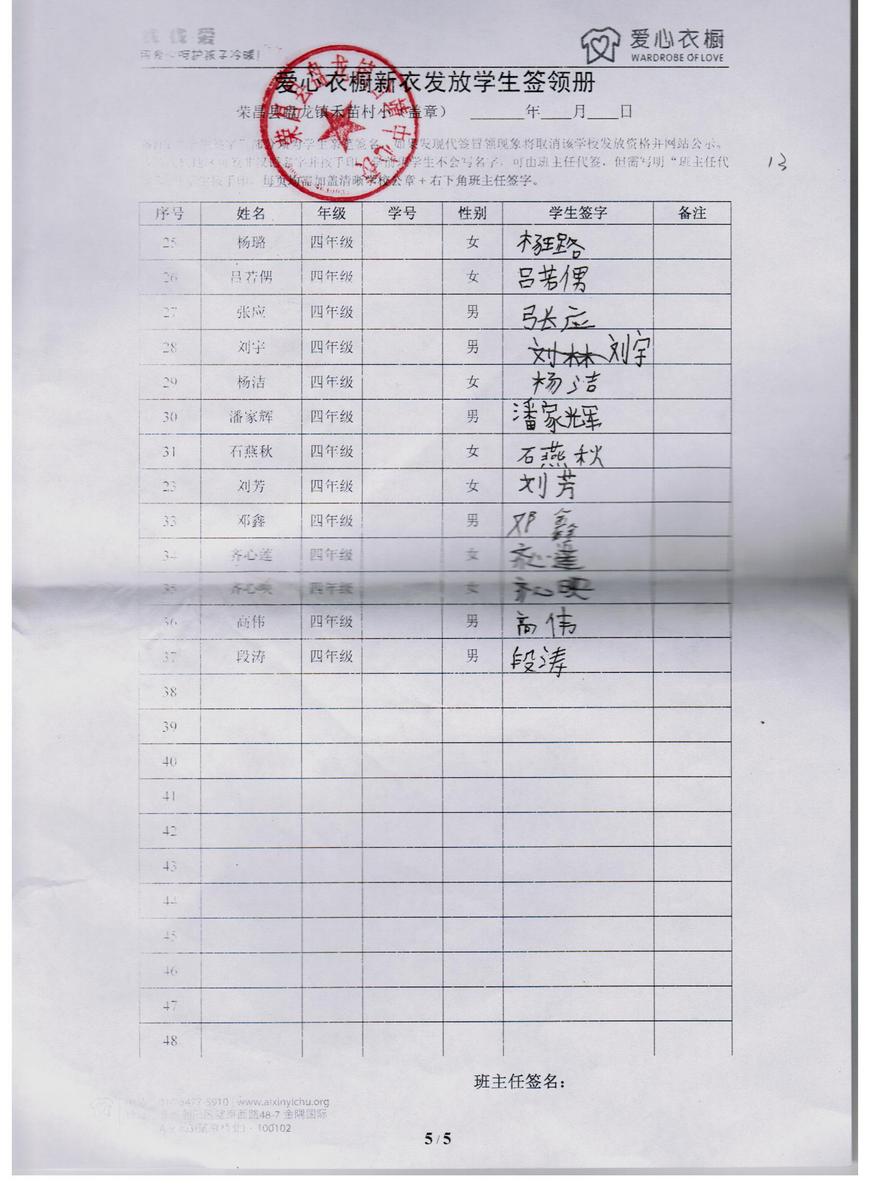 线线爱
爱心衣橱
WARDROBE OF LOVE
爱心衣橱新衣发放学生签领册
荣昌县盘龙镇禾苗村小（盖章） 年 月 日
为学生亲笔签名，如果发现代签冒领现象将取消该学校发放资格并网站公示。
学生不会写名字，可由班主任代签，但需写明“班主任代
每页均需加盖清晰学校公章+右下角班主任签字。
13
序号 姓名 年级 学号 性别 学生签字 备注
25 杨璐 四年级 女 杨璐
26 吕若偶 四年级 女 吕若偶
27 张应 四年级 男 张应
28 刘宇 四年级 男 刘林 刘宇
29 杨洁 四年级 女 杨洁
30 潘家辉 四年级 男 潘家辉
31 石燕秋 四年级 女 石燕秋
23 刘芳 四年级 女 刘芳
33 邓鑫 四年级 男 邓鑫
34 齐心莲 四年级 女 齐心莲
35 齐心映 四年级 女 齐心映
36 高伟 四年级 男 高伟
37 段涛 四年级 男 段涛
38
39
40
41
42
43
44
45
46
47
48
班主任签名：
5910 | www.aixinyichu.org
48-7 金隅国际
100102
5 / 5